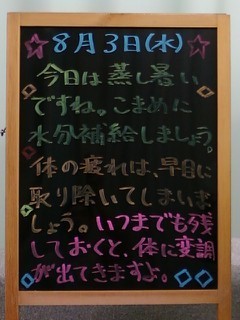 8月3日(水)
今日は蒸し暑い
ですね。こまめに
水分補給しましょう。
体の疲れは、早目に
取り除いてしまいま
しょう。いつまでも残
しておくと、体に変調
が出てきますよ。